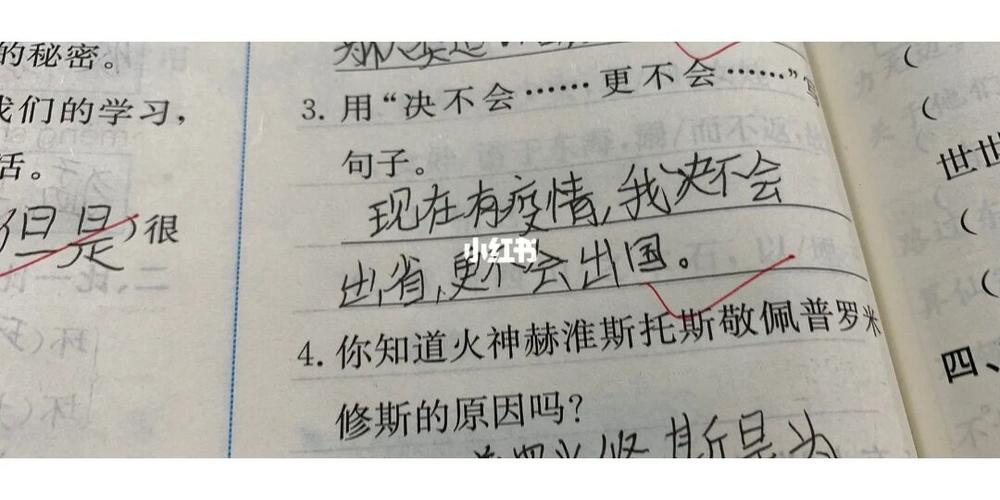 的秘密。
我们的学习，
活。
(但是)很
3. 用“决不会……更不会……”写
句子。
现在有疫情，我决不会
出省，更不会出国。
小红书
4. 你知道火神赫淮斯托斯敬佩普罗米
修斯的原因吗？
斯是为
世世
四、